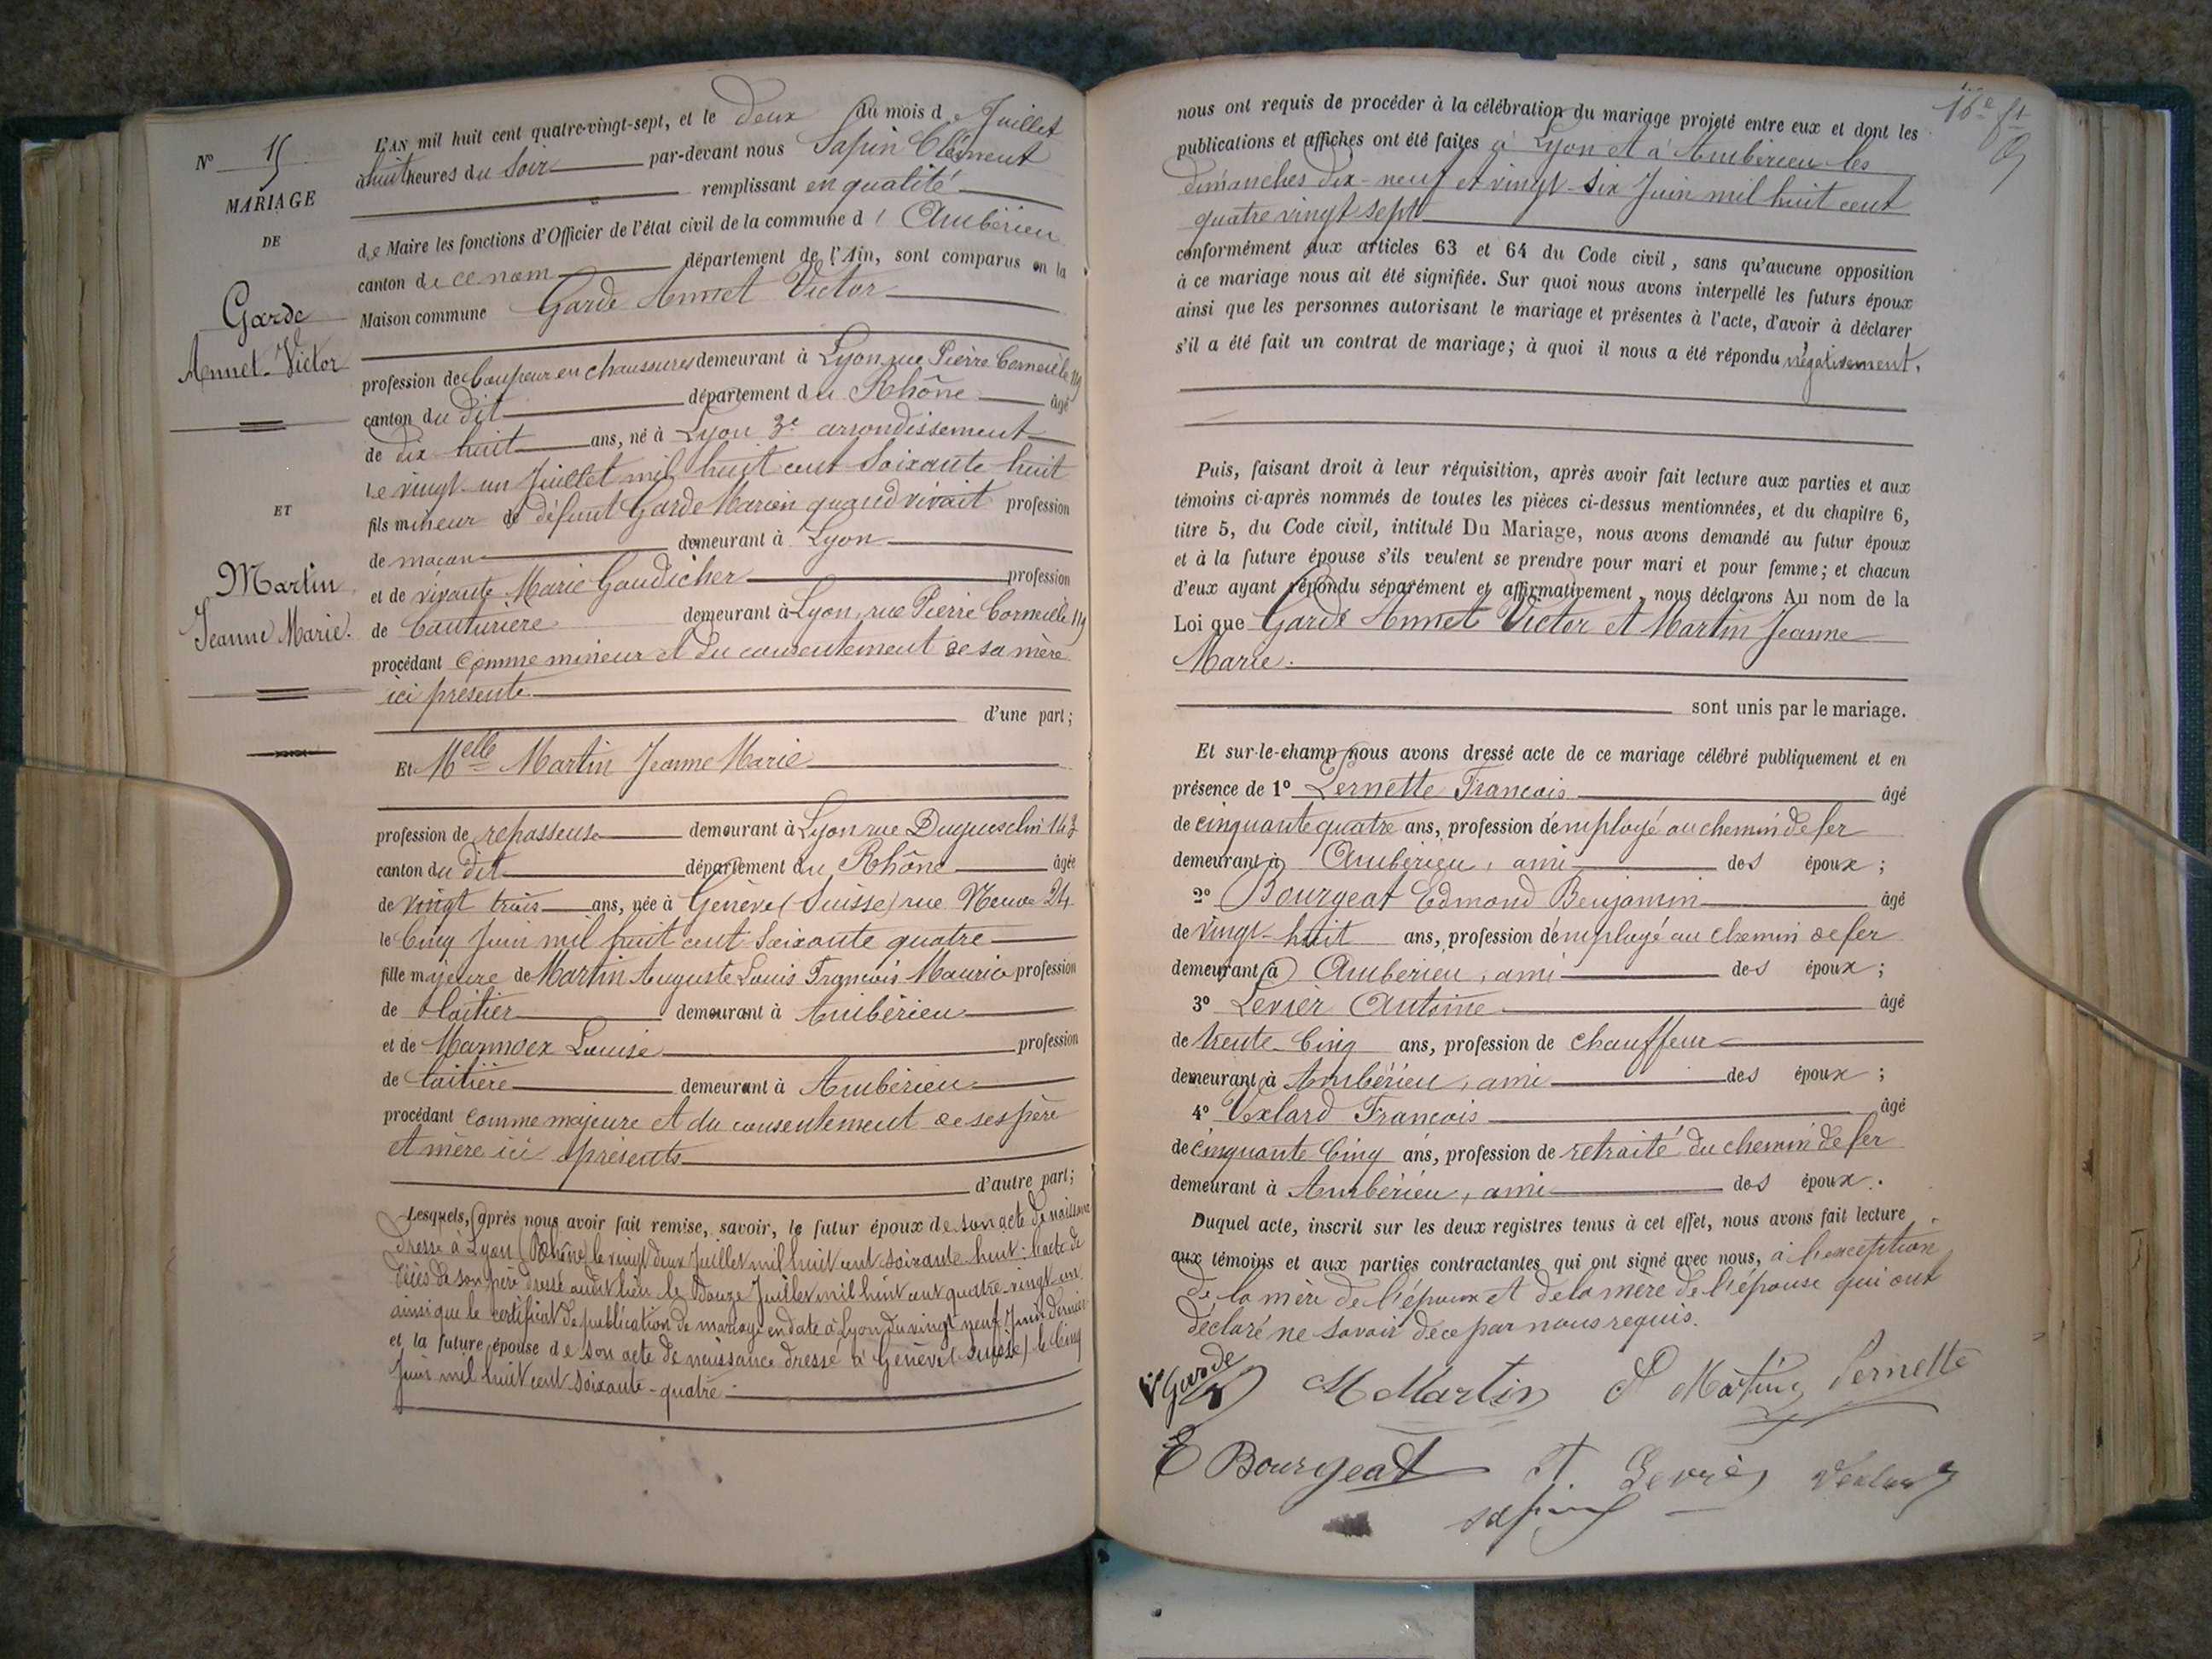 N° 15
MARIAGE
DE
Garde
Annet-Victor
ET
Martin
Jeanne Marie.
L'AN mil huit cent quatre-vingt-sept, et le deux du mois de Juillet
à huit heures du soir par-devant nous Sapin Clément
remplissant en qualité
de Maire les fonctions d'Officier de l'état civil de la commune d' Ambérieu
canton de ce nom département de l'Ain, sont comparus en la
Maison commune Garde Annet Victor
profession de Coupeur en chaussures demeurant à Lyon, rue Pierre Corneille 119
canton du dit département du Rhône âgé
de dix huit ans, né à Lyon 3e arrondissement
le vingt-un Juillet mil huit cent soixante huit
fils mineur de défunt Garde Marien quand vivait profession
de maçon demeurant à Lyon
et de vivante Marie Gaudicher profession
de Couturière demeurant à Lyon, rue Pierre Corneille 119
procédant comme mineur et du consentement de sa mère
ici présente
d'une part;
Et Melle Martin Jeanne Marie
profession de repasseuse demeurant à Lyon rue Duguesclin 143
canton du dit département du Rhône âgée
de vingt trois ans, née à Genève (Suisse) rue Neuve 24
le Cinq Juin mil huit cent soixante quatre
fille majeure de Martin Auguste Louis François Maurice profession
de laitier demeurant à Ambérieu
et de Louise profession
de laitière demeurant à Ambérieu
procédant comme majeure et du consentement de ses père
et mère ici présents
d'autre part;
Lesquels, après nous avoir fait remise, savoir, le futur époux de son acte de naissance
dressé à Lyon (Rhône) le vingt deux Juillet mil huit cent soixante-huit; l'acte de
décès de son père dressé audit lieu le Douze Juillet mil huit cent quatre-vingt-un
ainsi que le certificat de publication de mariage en date à Lyon du vingt neuf Juin dernier
et la future épouse de son acte de naissance dressé à Genève (Suisse) le Cinq
Juin mil huit cent soixante-quatre
16e ft
nous ont requis de procéder à la célébration du mariage projeté entre eux et dont les
publications et affiches ont été faites à Lyon et à Ambérieu les
dimanches dix-neuf et vingt-six Juin mil huit cent
quatre vingt sept
conformément aux articles 63 et 64 du Code civil, sans qu'aucune opposition
à ce mariage nous ait été signifiée. Sur quoi nous avons interpellé les futurs époux
ainsi que les personnes autorisant le mariage et présentes à l'acte, d'avoir à déclarer
s'il a été fait un contrat de mariage; à quoi il nous a été répondu négativement.
Puis, faisant droit à leur réquisition, après avoir fait lecture aux parties et aux
témoins ci-après nommés de toutes les pièces ci-dessus mentionnées, et du chapitre 6,
titre 5, du Code civil, intitulé Du Mariage, nous avons demandé au futur époux
et à la future épouse s'ils veulent se prendre pour mari et pour femme; et chacun
d'eux ayant répondu séparément et affirmativement, nous déclarons Au nom de la
Loi que Garde Annet Victor et Martin Jeanne
Marie.
sont unis par le mariage.
Et sur-le-champ nous avons dressé acte de ce mariage célébré publiquement et en
présence de 1° Pernette François âgé
de cinquante quatre ans, profession d'employé au chemin de fer
demeurant à Ambérieu, ami des époux;
2° Bourgeat Edmond Benjamin âgé
de vingt-huit ans, profession d'employé au chemin de fer
demeurant à Ambérieu, ami des époux;
3° Levrier Antoine âgé
de trente-Cinq ans, profession de chauffeur
demeurant à Ambérieu, ami des époux;
4° Vexlard François âgé
de cinquante Cinq ans, profession de retraité du chemin de fer
demeurant à Ambérieu, ami des époux.
Duquel acte, inscrit sur les deux registres tenus à cet effet, nous avons fait lecture
aux témoins et aux parties contractantes qui ont signé avec nous, à l'exception
de la mère de l'époux et de la mère de l'épouse qui ont
déclaré ne savoir de ce par nous requis.
Vr Garde M Martin A Martin Pernette
E Bourgeat A. Levrier Vexlard
Sapin